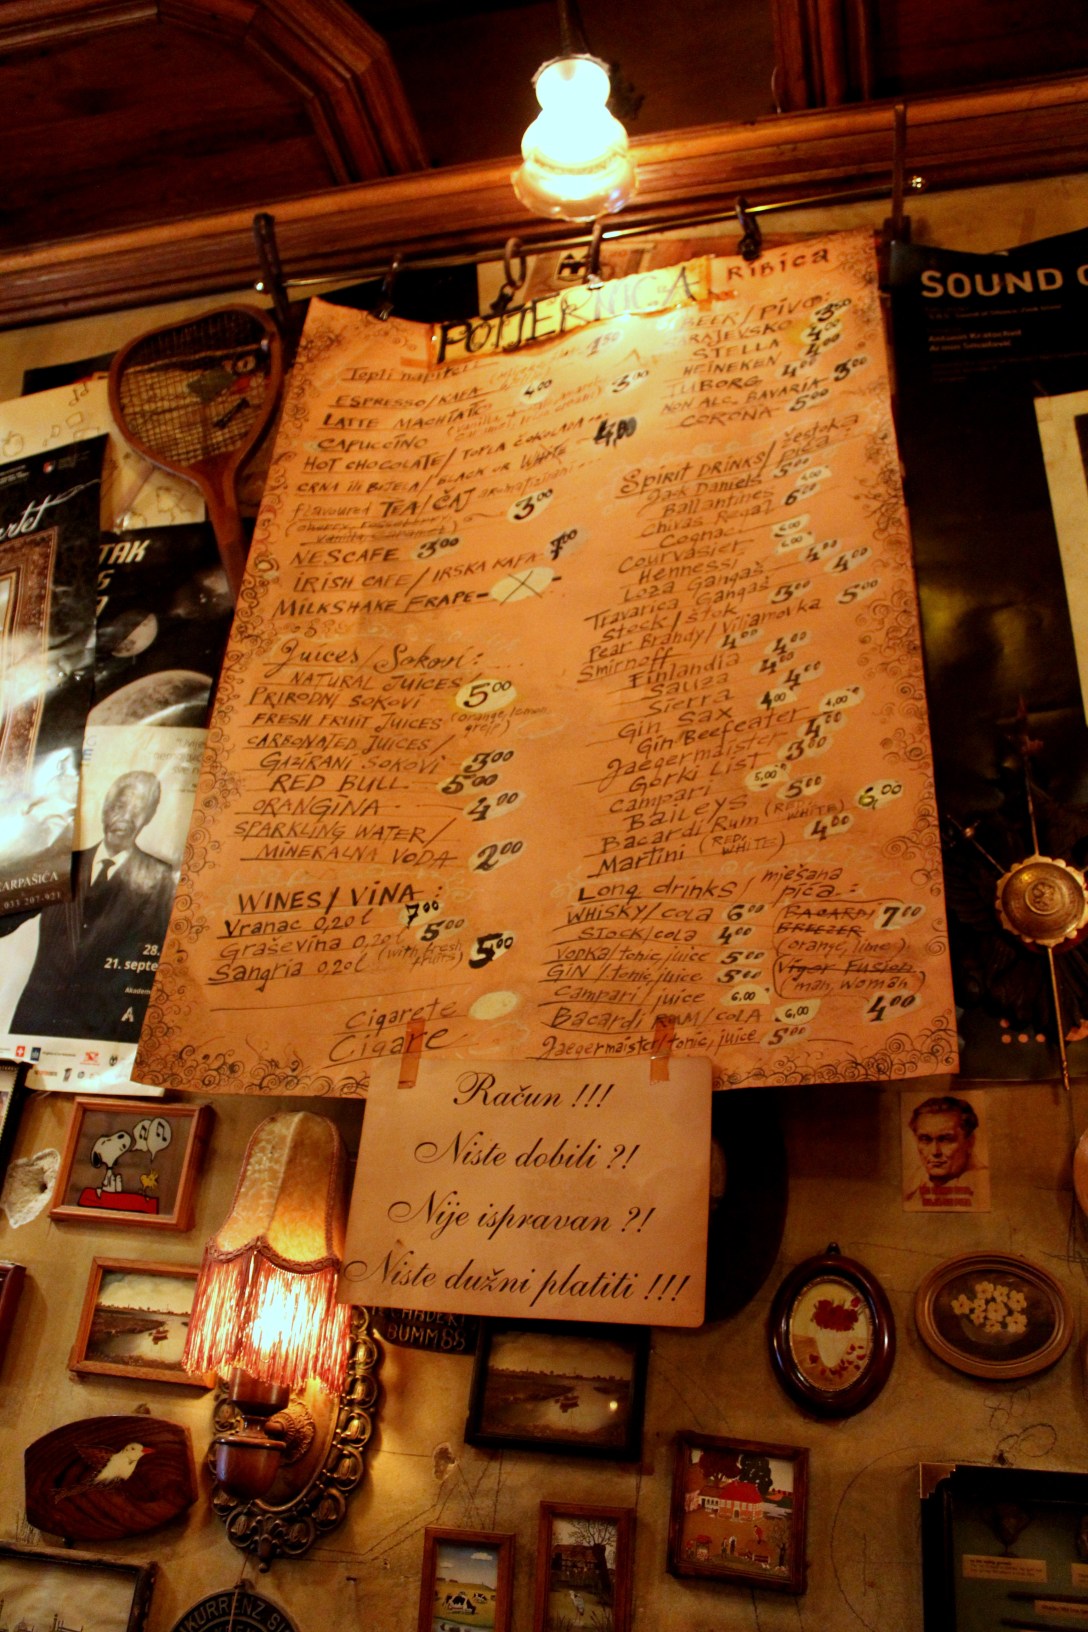 POTJERNICA
RIBICA
Topli napitci
ESPRESSO/KAFA
LATTE MACHIATO 4,00
CAPUCCINO 3,00
HOT CHOCOLATE/TOPLA ČOKOLADA
CRNA ili BIJELA/BLACK OR WHITE 4,00
flavoured TEA/ČAJ 3,00
NESCAFE 3,00
IRISH CAFE/IRSKA KAFA 7,00
MILKSHAKE FRAPE-
Juices/Sokovi:
NATURAL JUICES/
PRIRODNI SOKOVI 5,00
FRESH FRUIT JUICES (orange, lemon,
CARBONATED JUICES/
GAZIRANI SOKOVI 3,00
RED BULL 5,00
ORANGINA 4,00
SPARKLING WATER/
MINERALNA VODA 2,00
WINES/VINA:
Vranac 0,20 l 7,00
Graševina 0,20 l 5,00
Sangria 0,20 l (with fresh fruits) 5,00
Cigarete
Cigare
BEER/PIVO:
SARAJEVSKO 3,50
STELLA 4,00
HEINEKEN 4,00
TUBORG
NON ALC. BAVARIA 3,00
CORONA 5,00
Spirit DRINKS/žestoka pića
Jack Daniels 5,00
Ballantines
Chivas Regal 6,00
Cognac
Courvasier
Hennessi
Loza Gangaš 4,00
Travarica Gangaš 4,00
Stock/štok 3,00
Pear Brandy/Viljamovka 5,00
Smirnoff 4,00
Finlandia 4,00
Sauza
Sierra
Gin Sax 4,00
Gin Beefeater 4,00
Jaegermaister 4,00
Gorki List 3,00
Campari 5,00
Baileys 5,00
Bacardi Rum (RED, WHITE) 6,00
Martini (RED, WHITE) 4,00
Long drinks/mješana pića:
WHISKY/COLA 6,00
STOCK/COLA 4,00
VODKA/tonic, juice 5,00
GIN/tonic, juice 5,00
Campari/juice 6,00
Bacardi RUM/COLA 6,00
Jaegermaister/tonic, juice 5,00
BACARDI BREEZER 7,00
(orange, lime)
Vigor Fusion
(man, woman) 4,00
Račun !!!
Niste dobili ?!
Nije ispravan ?!
Niste dužni platiti !!!
SOUND
28.
21. septe
033 207-921